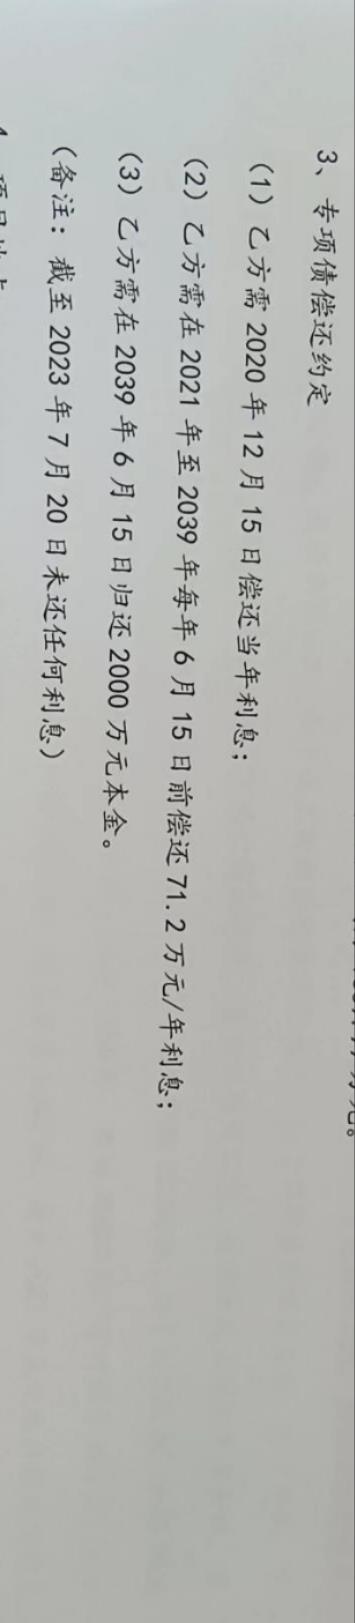 3、专项债偿还约定
（1）乙方需 2020 年 12 月 15 日偿还当年利息；
（2）乙方需在 2021 年至 2039 年每年 6 月 15 日前偿还 71.2 万元/年利息；
（3）乙方需在 2039 年 6 月 15 日归还 2000 万元本金。
（备注：截至 2023 年 7 月 20 日未还任何利息）